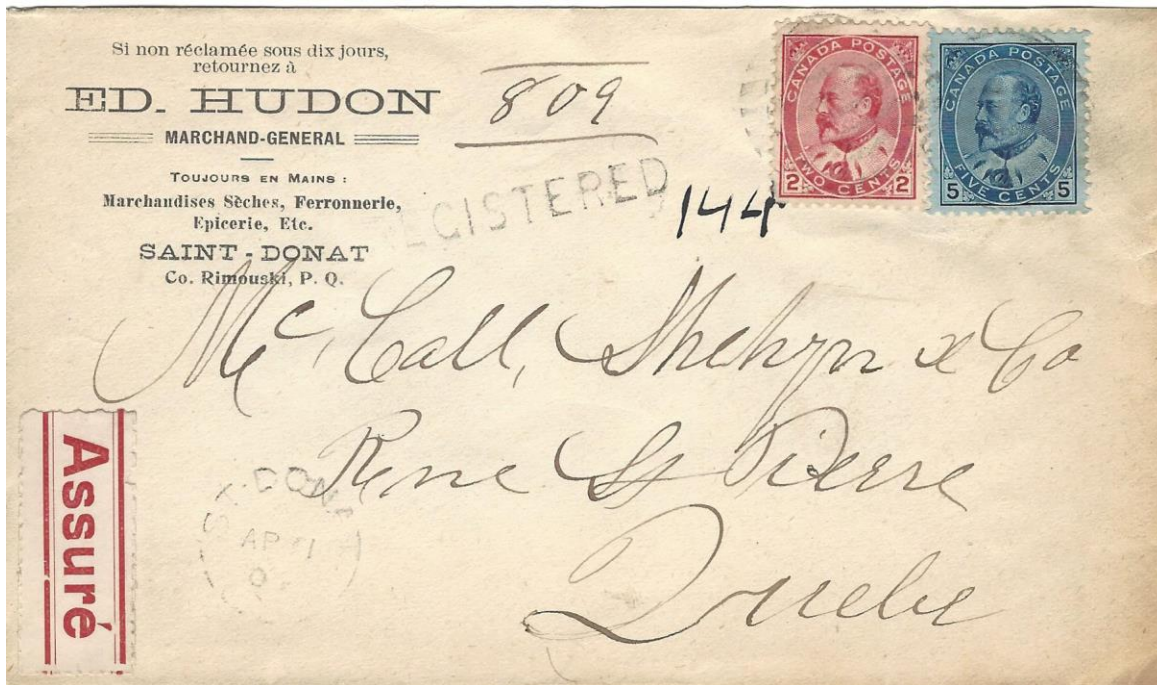 Si non réclamée sous dix jours,
retournez à
ED. HUDON
MARCHAND-GENERAL
TOUJOURS EN MAINS :
Marchandises Sèches, Ferronnerie,
Epicerie, Etc.
SAINT-DONAT
Co. Rimouski, P. Q.
809
REGISTERED
144
CANADA POSTAGE
TWO CENTS
2 2
CANADA POSTAGE
FIVE CENTS
5 5
Mc Call, Shehyn & Co
St Pierre
Quebe
Assuré
ST. DONAT
AP